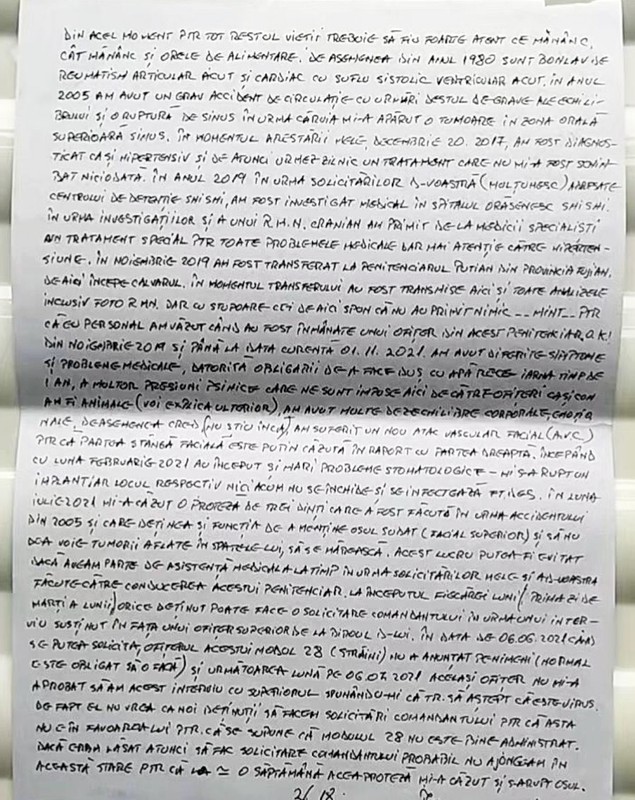 DIN ACEL MOMENT PTR TOT RESTUL VIETII TREBUIE SĂ FIU FOARTE ATENT CE MĂNÂNC,
CÂT MĂNÂNC ȘI ORELE DE ALIMENTARE. DE ASEMENEA DIN ANUL 1980 SUNT BONLAV DE
REUMATISM ARTICULAR ACUT ȘI CARDIAC CU SUFLU SISTOLIC VENTRICULAR ACUT. ÎN ANUL
2005 AM AVUT UN GRAV ACCIDENT DE CIRCULAȚIE CU URMĂRI DESTUL DE GRAVE ALE ECHILI-
BRULUI ȘI O RUPTURĂ DE SINUS ÎN URMA CĂRUIA MI-A APĂRUT O TUMOARE ÎN ZONA ORALĂ
SUPERIOARĂ SINUS. ÎN MOMENTUL ARESTĂRII MELE, DECEMBRIE 20. 2017, AM FOST DIAGNOS-
TICAT CA ȘI HIPERTENSIV ȘI DE ATUNCI URMEZ ZILNIC UN TRATAMENT CARE NU MI-A FOST SCHIM
BAT NICIODATĂ. ÎN ANUL 2019 ÎN URMA SOLICITĂRILOR D-VOASTRĂ (MULȚUMESC) ADRESATE
CENTRULUI DE DETENȚIE SHISHI, AM FOST INVESTIGAT MEDICAL ÎN SPITALUL ORĂȘENESC SHISHI.
ÎN URMA INVESTIGAȚIILOR ȘI A UNUI R.M.N. CRANIAN AM PRIMIT DE LA MEDICII SPECIALISTI
UN TRATAMENT SPECIAL PTR TOATE PROBLEMELE MEDICALE DAR MAI ATENȚIE CĂTRE HIPERTEN-
SIUNE. ÎN NOIEMBRIE 2019 AM FOST TRANSFERAT LA PENITENCIARUL PUTIAN DIN PROVINCIA FUJIAN.
DE AICI ÎNCEPE CALVARUL. ÎN MOMENTUL TRANSFERULUI AU FOST TRANSMISE AICI ȘI TOATE ANALIZELE
INCLUSIV FOTO RMN. DAR CU STUPOARE CEI DE AICI SPUN CĂ NU AU PRIMIT NIMIC -- MINT -- PTR
CĂ EU PERSONAL AM VĂZUT CÂND AU FOST ÎNMÂNATE UNUI OFIȚER DIN ACEST PENITENCIAR. O.K!
DIN NOIEMBRIE 2019 ȘI PÂNĂ LA DATA CURENTĂ 01.11.2021. AM AVUT DIFERITE SIMPTOME
ȘI PROBLEME MEDICALE, DATORITĂ OBLIGĂRII DE A FACE DUȘ CU APĂ RECE IARNA TIMP DE
1 AN, A MULTOR PRESIUNI PSIHICE CARE NE SUNT IMPUSE AICI DE CĂTRE OFIȚERI CA ȘI CUM
AM FI ANIMALE (VOI EXPLICA ULTERIOR), AM AVUT MULTE DEZECHILIBRE CORPORALE, EMOȚIO
NALE, DEASEMENEA CRED (NU ȘTIU ÎNCĂ) AM SUFERIT UN NOU ATAC VASCULAR FACIAL (A.V.C.)
PTR CĂ PARTEA STÂNGĂ FACIALĂ ESTE PUȚIN CĂZUTĂ ÎN RAPORT CU PARTEA DREAPTĂ. ÎNCEPÂND
CU LUNA FEBRUARIE 2021 AU ÎNCEPUT ȘI MARI PROBLEME STOMATOLOGICE - MI S-A RUPT UN
IMPLANT IAR LOCUL RESPECTIV NICI ACUM NU SE ÎNCHIDE ȘI SE INFECTEAZĂ FT. DES. ÎN LUNA
IULIE 2021 MI-A CĂZUT O PROTEZĂ DE TREI DINȚI CARE A FOST FĂCUTĂ ÎN URMA ACCIDENTULUI
DIN 2005 ȘI CARE DEȚINEA ȘI FUNCȚIA DE A MENȚINE OSUL SUDAT (FACIAL SUPERIOR) ȘI SĂ NU
DEA VOIE TUMORII AFLATE ÎN SPATELE LUI, SĂ SE MĂREASCĂ. ACEST LUCRU PUTEA FI EVITAT
DACĂ AVEAM PARTE DE ASISTENȚĂ MEDICALĂ LA TIMP ÎN URMA SOLICITĂRILOR MELE ȘI A D-VOASTRĂ
FĂCUTE CĂTRE CONDUCEREA ACESTUI PENITENCIAR. LA ÎNCEPUTUL FIECĂREI LUNI (PRIMA ZI DE
MARȚI A LUNII) ORICE DEȚINUT POATE FACE O SOLICITARE COMANDANTULUI ÎN URMA UNUI INTER-
VIU SUSȚINUT ÎN FAȚA UNUI OFIȚER SUPERIOR DE LA BIROUL D-LUI. ÎN DATA DE 06.06.2021 CÂND
SE PUTEA SOLICITA, OFIȚERUL ACESTUI MODUL 28 (STRĂINI) NU A ANUNȚAT PE NIMENI (NORMAL
ESTE OBLIGAT SĂ O FACĂ) ȘI URMĂTOAREA LUNĂ PE 06.07.2021 ACELAȘI OFIȚER NU MI-A
APROBAT SĂ AM ACEST INTERVIU CU SUPERIORUL SPUNÂNDU-MI CĂ TR. SĂ AȘTEPT CĂ ESTE VIRUS.
DE FAPT EL NU VREA CA NOI DEȚINUȚII SĂ FACEM SOLICITĂRI COMANDANTULUI PTR CĂ ASTA
NU E ÎN FAVOAREA LUI PTR. CĂ SE SUPUNE CĂ MODULUL 28 NU ESTE BINE ADMINISTRAT.
DACĂ ERAM LĂSAT ATUNCI SĂ FAC SOLICITARE COMANDANTULUI PROBABIL NU AJUNGEAM ÎN
ACEASTĂ STARE PTR CĂ LA ≃ O SĂPTĂMÂNĂ ACEA PROTEZĂ MI-A CĂZUT ȘI S-A RUPT OSUL.
2/18.